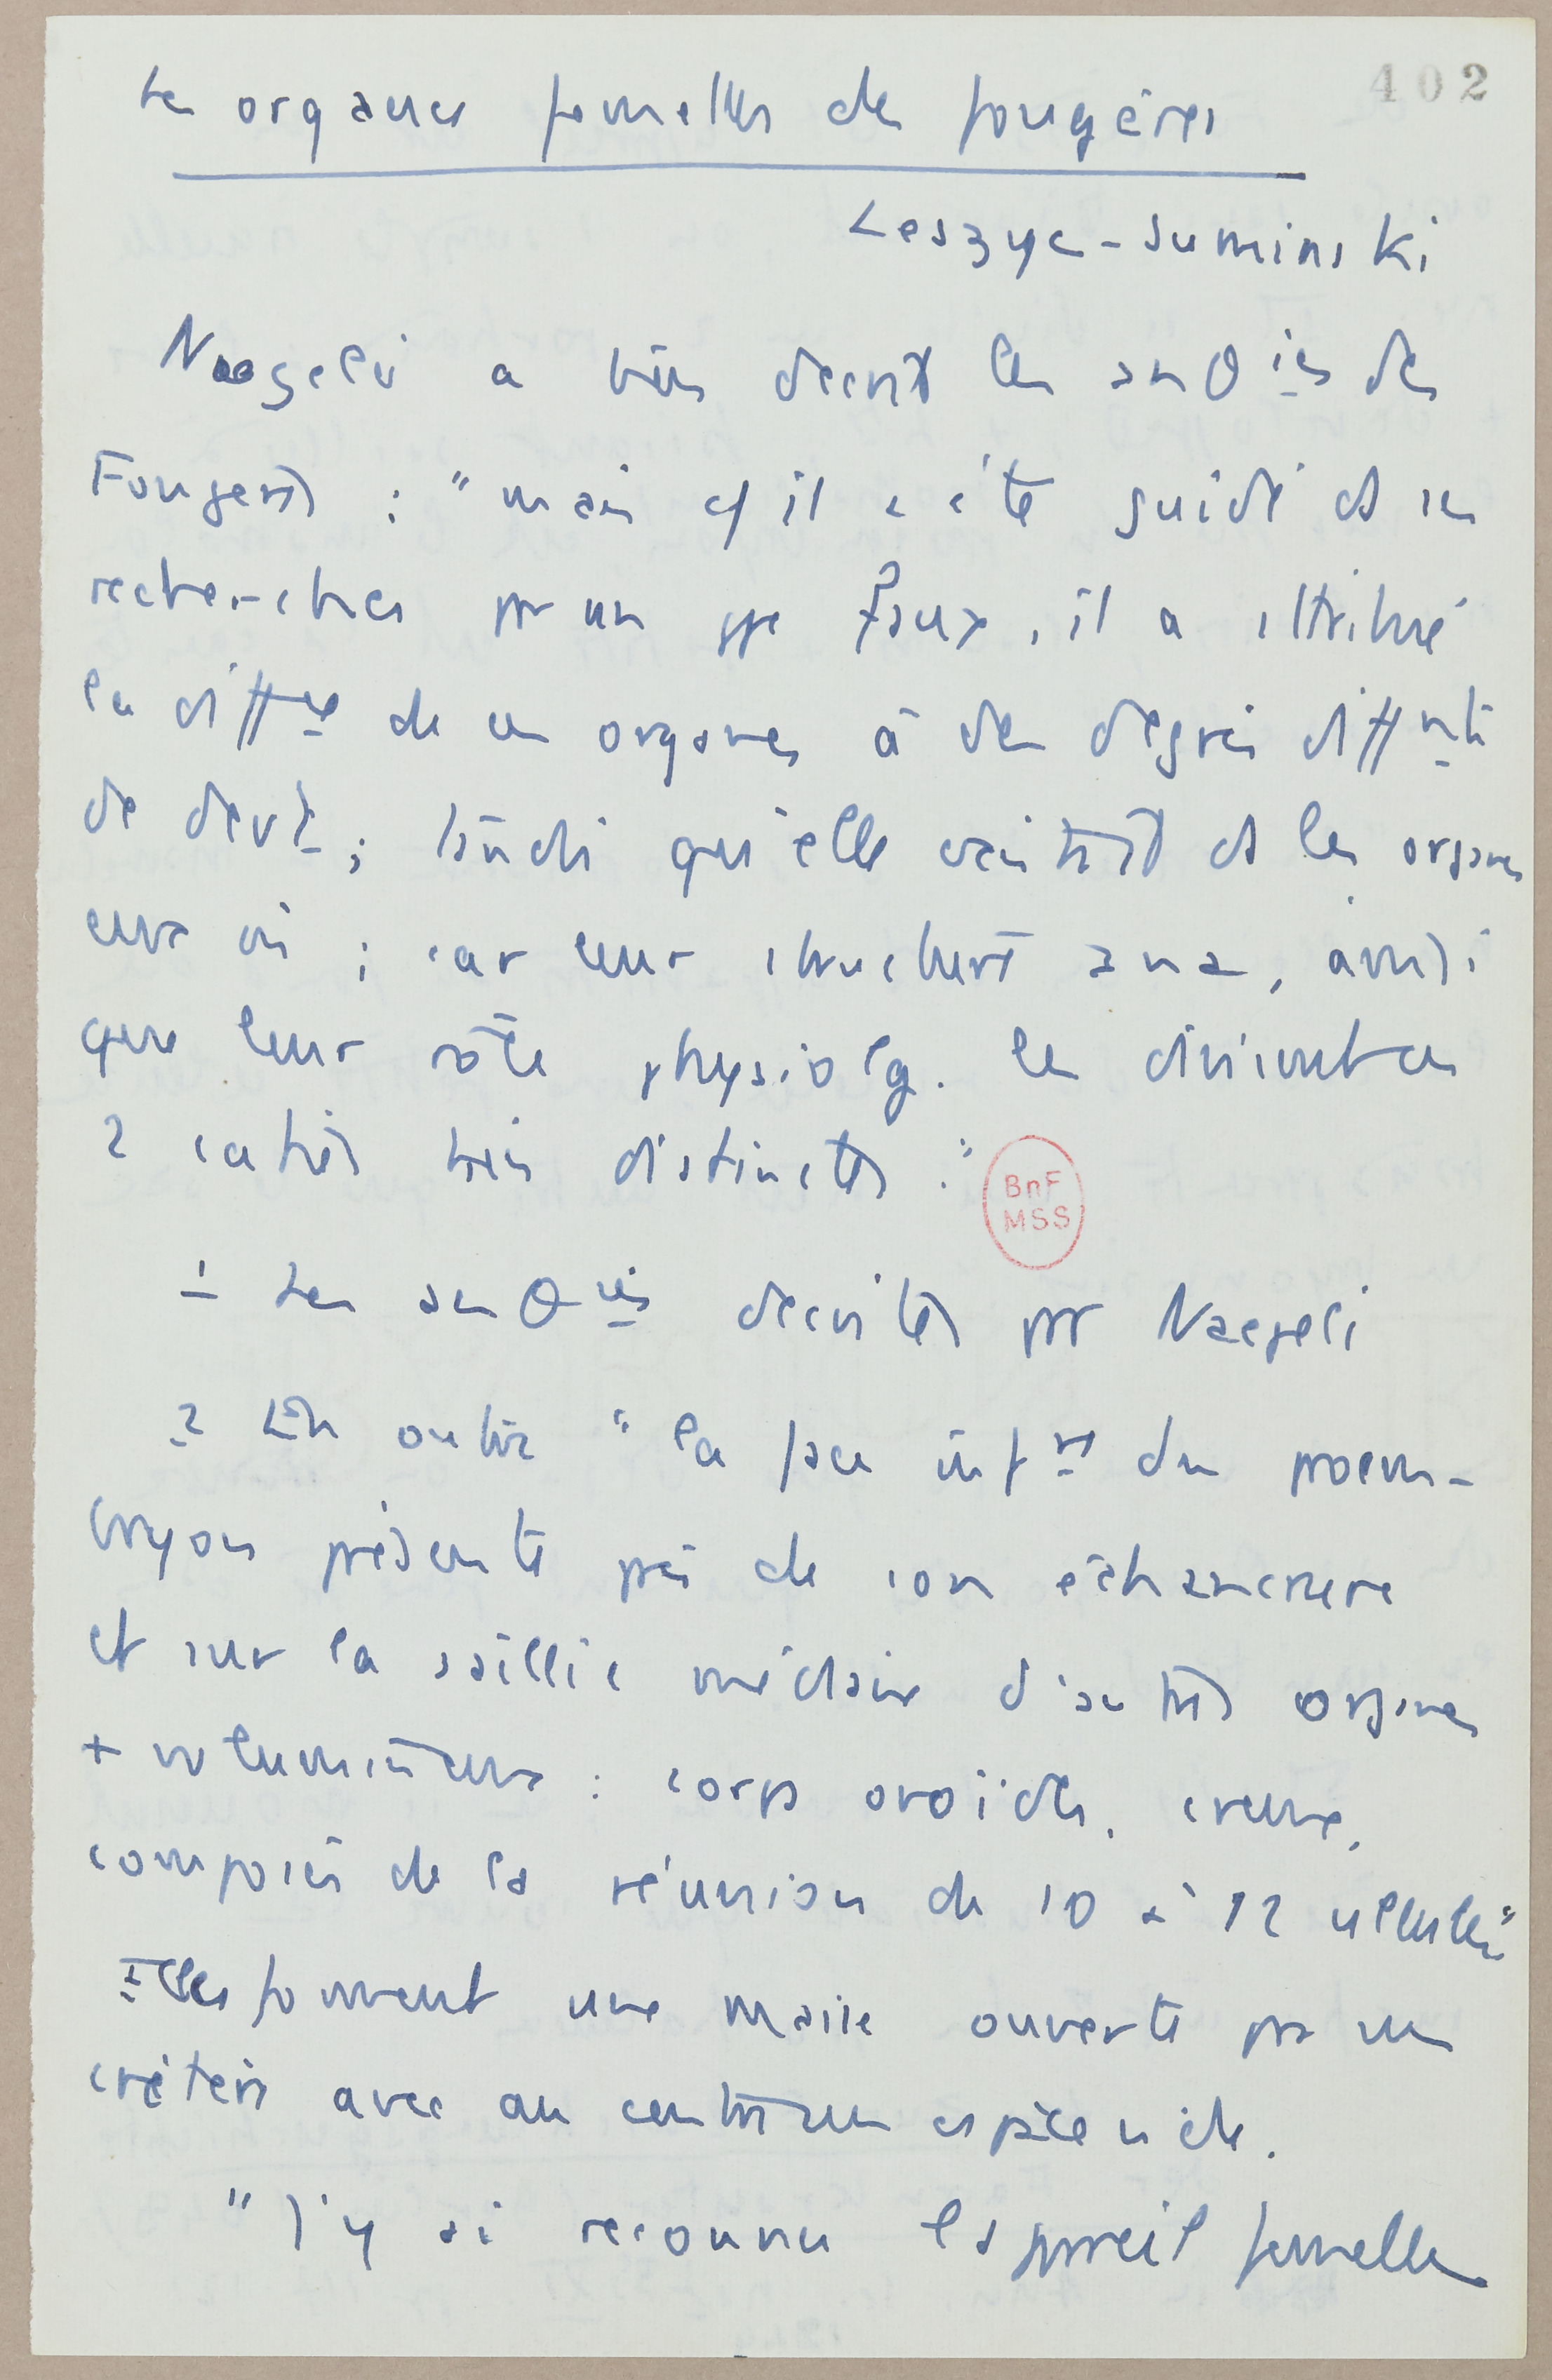 402
Les organes femelles des fougères
Leszyc-Suminski
Naegeli a bien décrit les anθies des
Fougères : "mais cô il a été guidé ds ses
recherches par un ppe faux, il a attribué
la diffce de ces organes à des degrés diffnts
de devt ; tandis qu'elle existait ds les organes
eux mê ; car leur structure ana, ainsi
que leur rôle physiolg. les divisent en
2 catries très distinctes."
BnF
MSS
1 Les anθies décrites par Naegeli
2 En outre "la face infre du proem-
bryon présente près de son échancrure
et sur la saillie médiane d'autres organes
+ volumineux : corps ovoïdes, creux,
composés de la réunion de 10 à 12 cellules"
Elles forment une masse ouverte par un
cratère avec au centre un espace vide.
"J'y ai reconnu l'appareil femelle